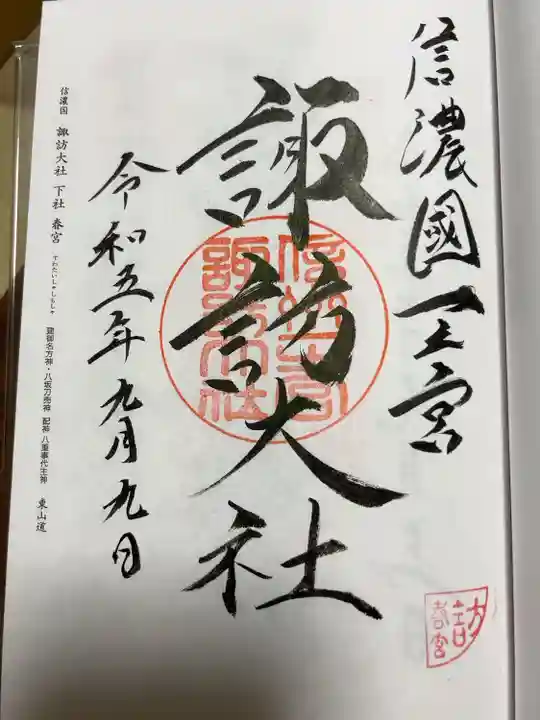 信濃國一之宮
諏訪大社
令和五年九月九日
信濃国 諏訪大社 下社 春宮 すわたいしゃしもしゃ 建御名方神・八坂刀売神 配神 八重事代主神 東山道
信州一宮
諏訪大社
訪
春宮